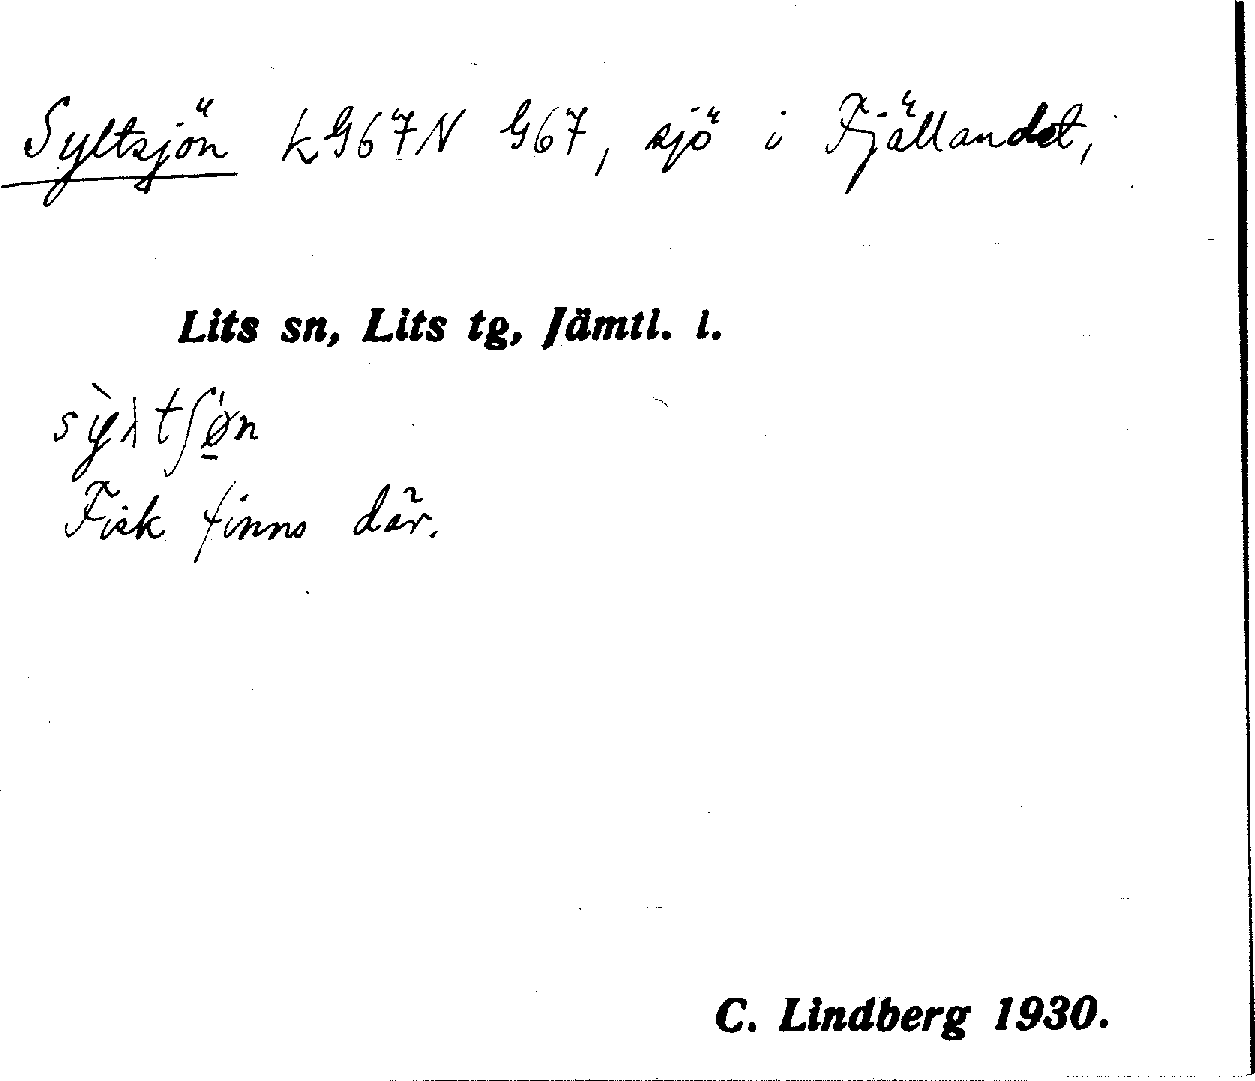 Syltsjön k G67N G67, sjö i Fjällandet,
Lits sn, Lits tg, Jämtl. l.
sỳλtʃø̱n
Fisk finns där.
C. Lindberg 1930.